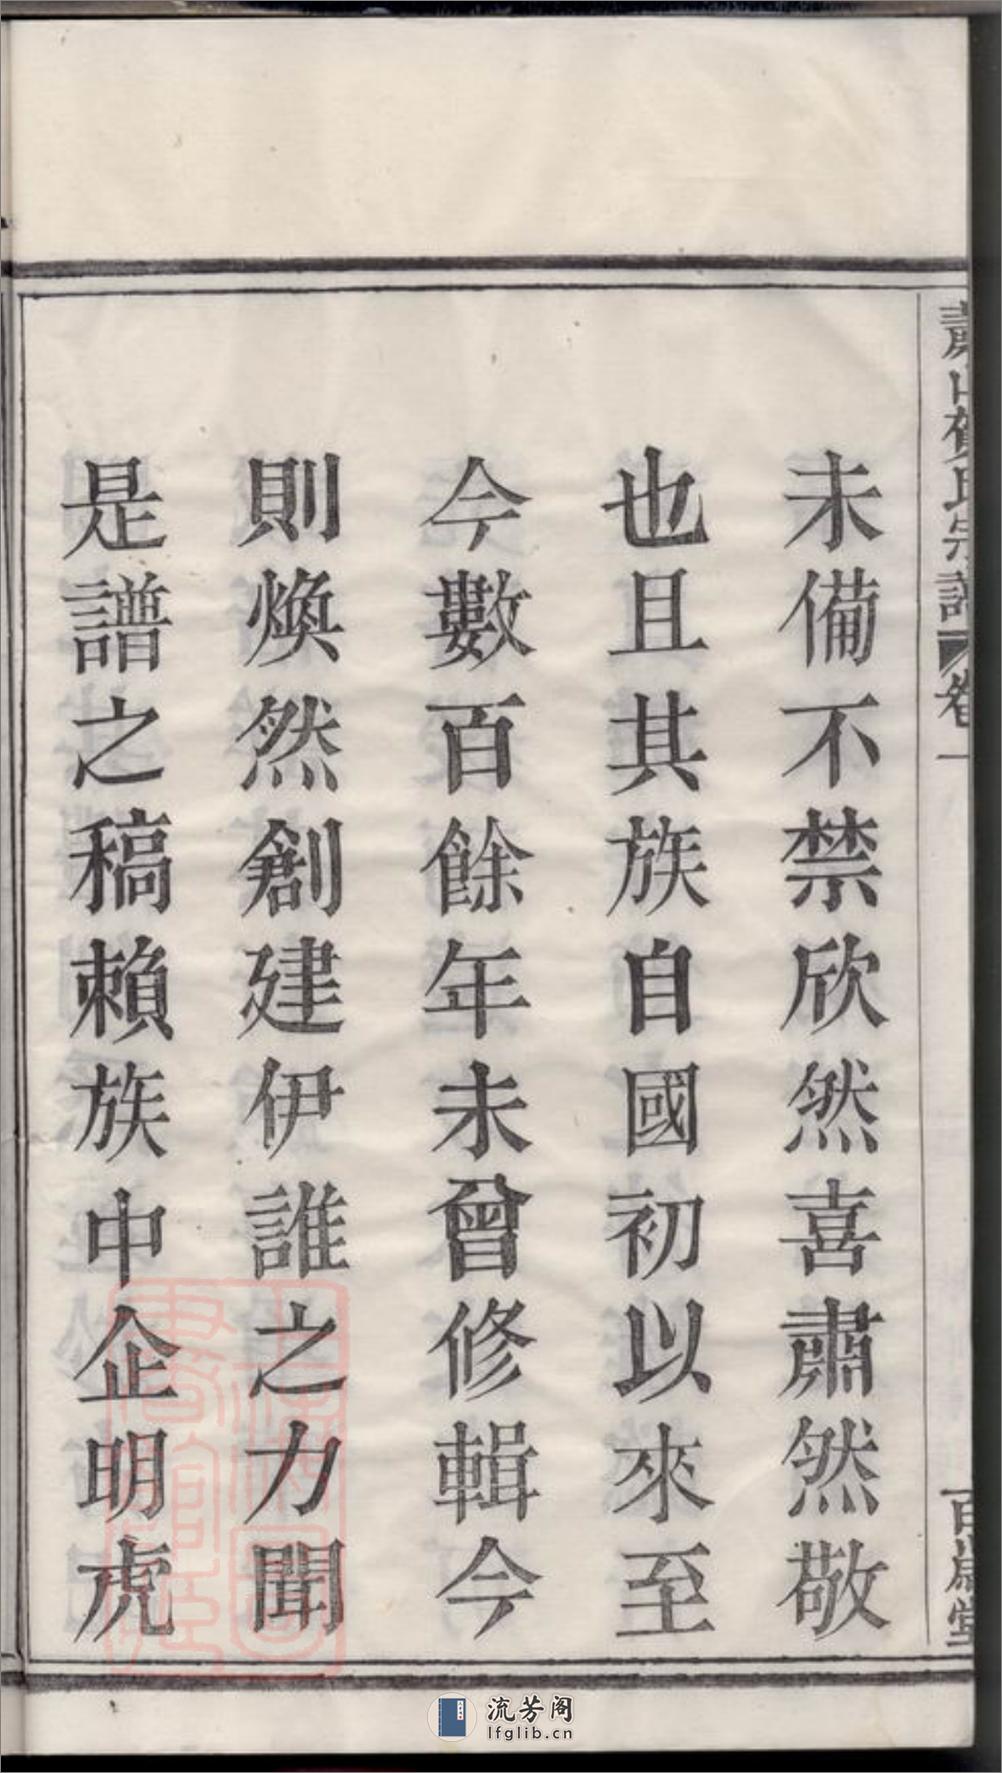 蕭山賀氏宗譜 卷一
未備不禁欣然喜肅然敬
也且其族自國初以來至
今數百餘年未曾修輯今
則煥然創建伊誰之力聞
是譜之稿賴族中企明虎
流芳阁
lfglib.cn